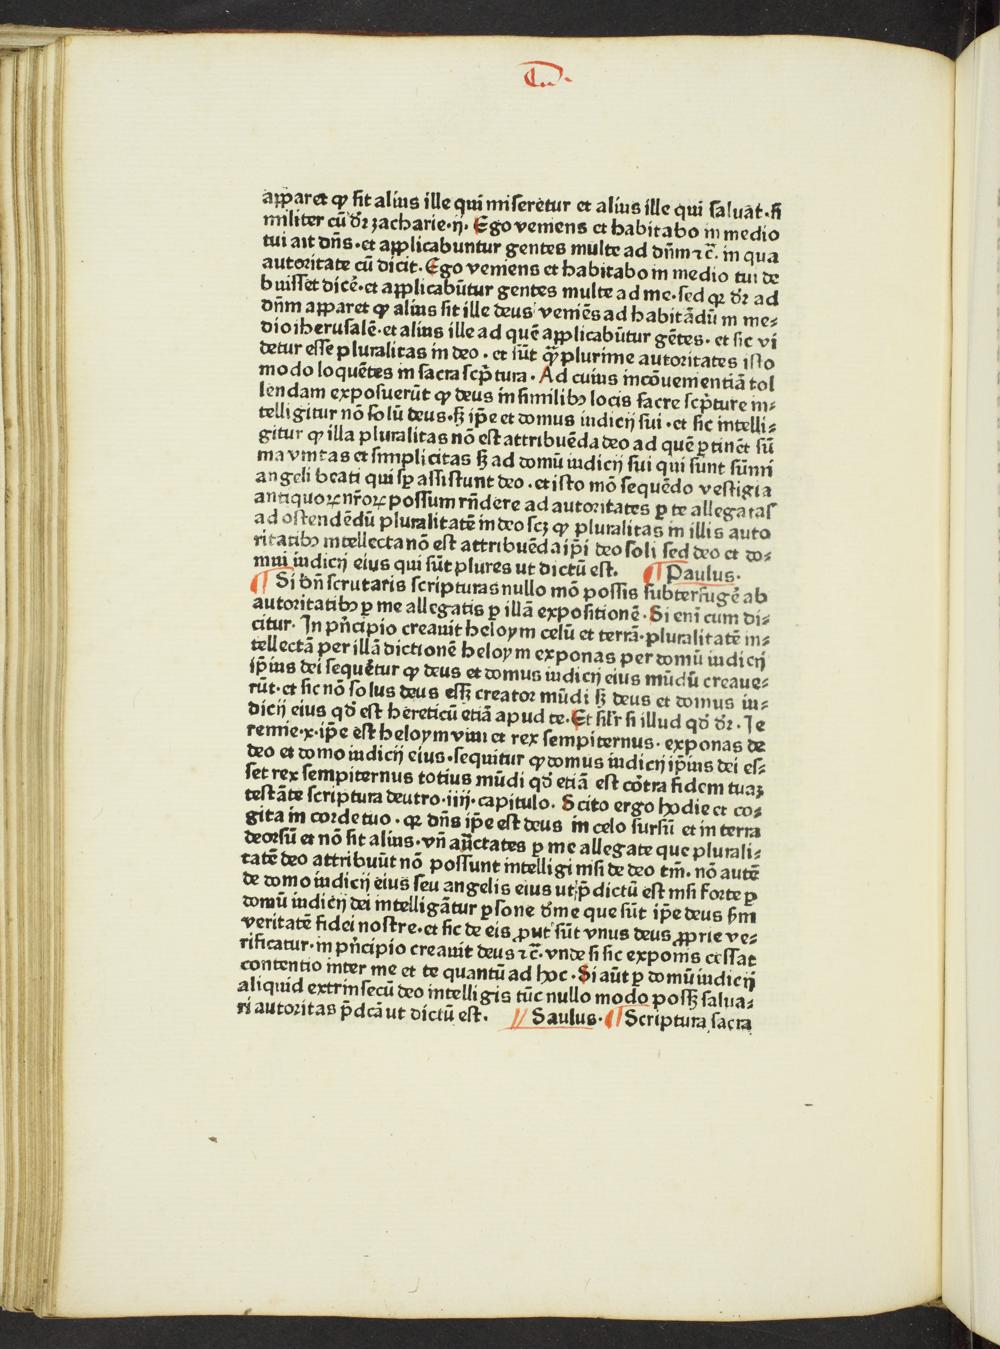 apparet ꝙ sit alius ille qui miseretur et alius ille qui saluat·si
militer cũ dr̃ zacharie·ij· Ego veniens et habitabo in medio
tui ait dñs·et applicabuntur gentes multe ad dñm ⁊ c̃· in qua
autoritate cũ dicit· Ego veniens et habitabo in medio tui de
buisset dicẽ·et applicabũtur gentes multe ad me·sed qꝛ dr̃ ad
dñm apparet ꝙ alius sit ille deus veniẽs ad habitãdũ in me⸗
dio iherusalẽ·et alius ille ad quẽ applicabũtur gẽtes· et sic vi
detur esse pluralitas in deo · et sũt qꝫ̃ plurime autoritates isto
modo loquẽtes in sacra scp̃tura · Ad cuius incõuenientiã tol
lendam exposuerũt ꝙ deus in similibꝰ locis sacre scp̃ture in⸗
telligitur nõ solũ deus·sꝫ ip̃e et domus iudicij sui ·et sic intelli⸗
gitur ꝙ illa pluralitas nõ est attribuẽda deo ad quẽ ꝑtinet sũ
ma vnitas et simplicitas sꝫ ad domũ iudicij sui qui sunt sũmi
angeli beati qui sꝑ assistunt deo · et isto mõ sequẽdo vestigia
antiquoꝝ nr̃oꝝ possum rñdere ad autoritates ꝑ te allegatas
ad ostendẽdũ pluralitatẽ in deo scꝫ ꝙ pluralitas in illis auto
ritatibꝰ intellecta nõ est attribuẽda ip̃i deo soli sed deo et do⸗
mui iudicij eius qui sũt plures ut dictũ est. ¶ Paulus·
¶ Si bñ scrutaris scripturas nullo mõ possis subterfugẽ ab
autoritatibꝰ ꝑ me allegatis ꝑ illã expositionẽ · Si eni cum di⸗
citur· In pñcipio creauit heloym celũ et terrã·pluralitatẽ in⸗
tellectã per illã dictionẽ heloym exponas per domũ iudicij
ip̃ius dei sequẽtur ꝙ deus et domus iudicij eius mũdũ creaue⸗
rũt·et sic nõ solus deus essꝫ creator mũdi sꝫ deus et domus iu⸗
dicij eius qđ est hereticũ etiã apud te· Et sil̃r si illud qđ dr̃ · Ie
remie·x·ip̃e est heloym viui et rex sempiternus· exponas de
deo et domo iudicij eius·sequitur ꝙ domus iudicij ip̃ius dei es⸗
set rex sempiternus totius mũdi qđ etiã est cõtra fidem tuaꝫ
testãte scriptura deutro·iiij·capitulo· Scito ergo hodie et co⸗
gita in corde tuo · qꝛ dñs ip̃e est deus in celo sursũ et in terra
deorsũ et nõ sit alius·vñ auctates ꝑ me allegate que plurali⸗
tatẽ deo attribuũt nõ possunt intelligi nisi de deo tm̃· nõ autẽ
de domo iudicij eius seu angelis eius ut p̃ dictũ est nisi forte ꝑ
domũ iudicij dei intelligãtur ꝑsone diĩne que sũt ip̃e deus sm̃
veritatẽ fidei nostre·et sic de eis ꝓut sũt vnus deus ꝓprie ve⸗
rificatur·in pñcipio creauit deus ⁊ c̃· vnde si sic exponis cessat
contentio inter me et te quantũ ad hoc · Si aũt ꝑ domũ iudicij
aliquid extrinsecũ deo intelligis tũc nullo modo possꝫ salua⸗
ri autoritas p̃dcã ut dictũ est. Saulus· ¶ Scriptura sacra